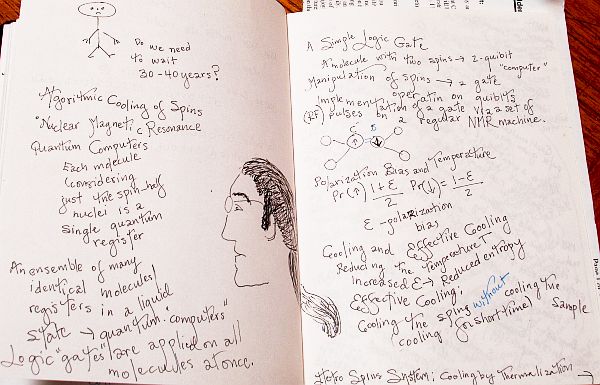 Do we need
to wait
30-40 years?
Algorithmic Cooling of Spins
Nuclear Magnetic Resonance
Quantum Computers
Each molecule
Considering
just the spin-half
nuclei is a
single quantum
register
An ensemble of many
identical molecules/
registers in a liquid
state → quantum "computers"
Logic "gates" are applied on all
molecules at once.
A Simple Logic Gate
A molecule with two spins → 2-quibit
"computer"
Manipulation of spins → a gate
operation on quibits
Implementation of a gate via a set of
(RF) pulses on a regular NMR machine.
C
Polarization Bias and Temperature
Pr(↑) 1+ε/2 Pr(↓) = 1-ε/2
ε - polarization
bias
Cooling and Effective Cooling
Reducing the Temperature T
increased ε → Reduced entropy
Effective Cooling:
Cooling the spins without cooling the
cooling (for short time) sample
Spins System: Cooling by Thermalization →